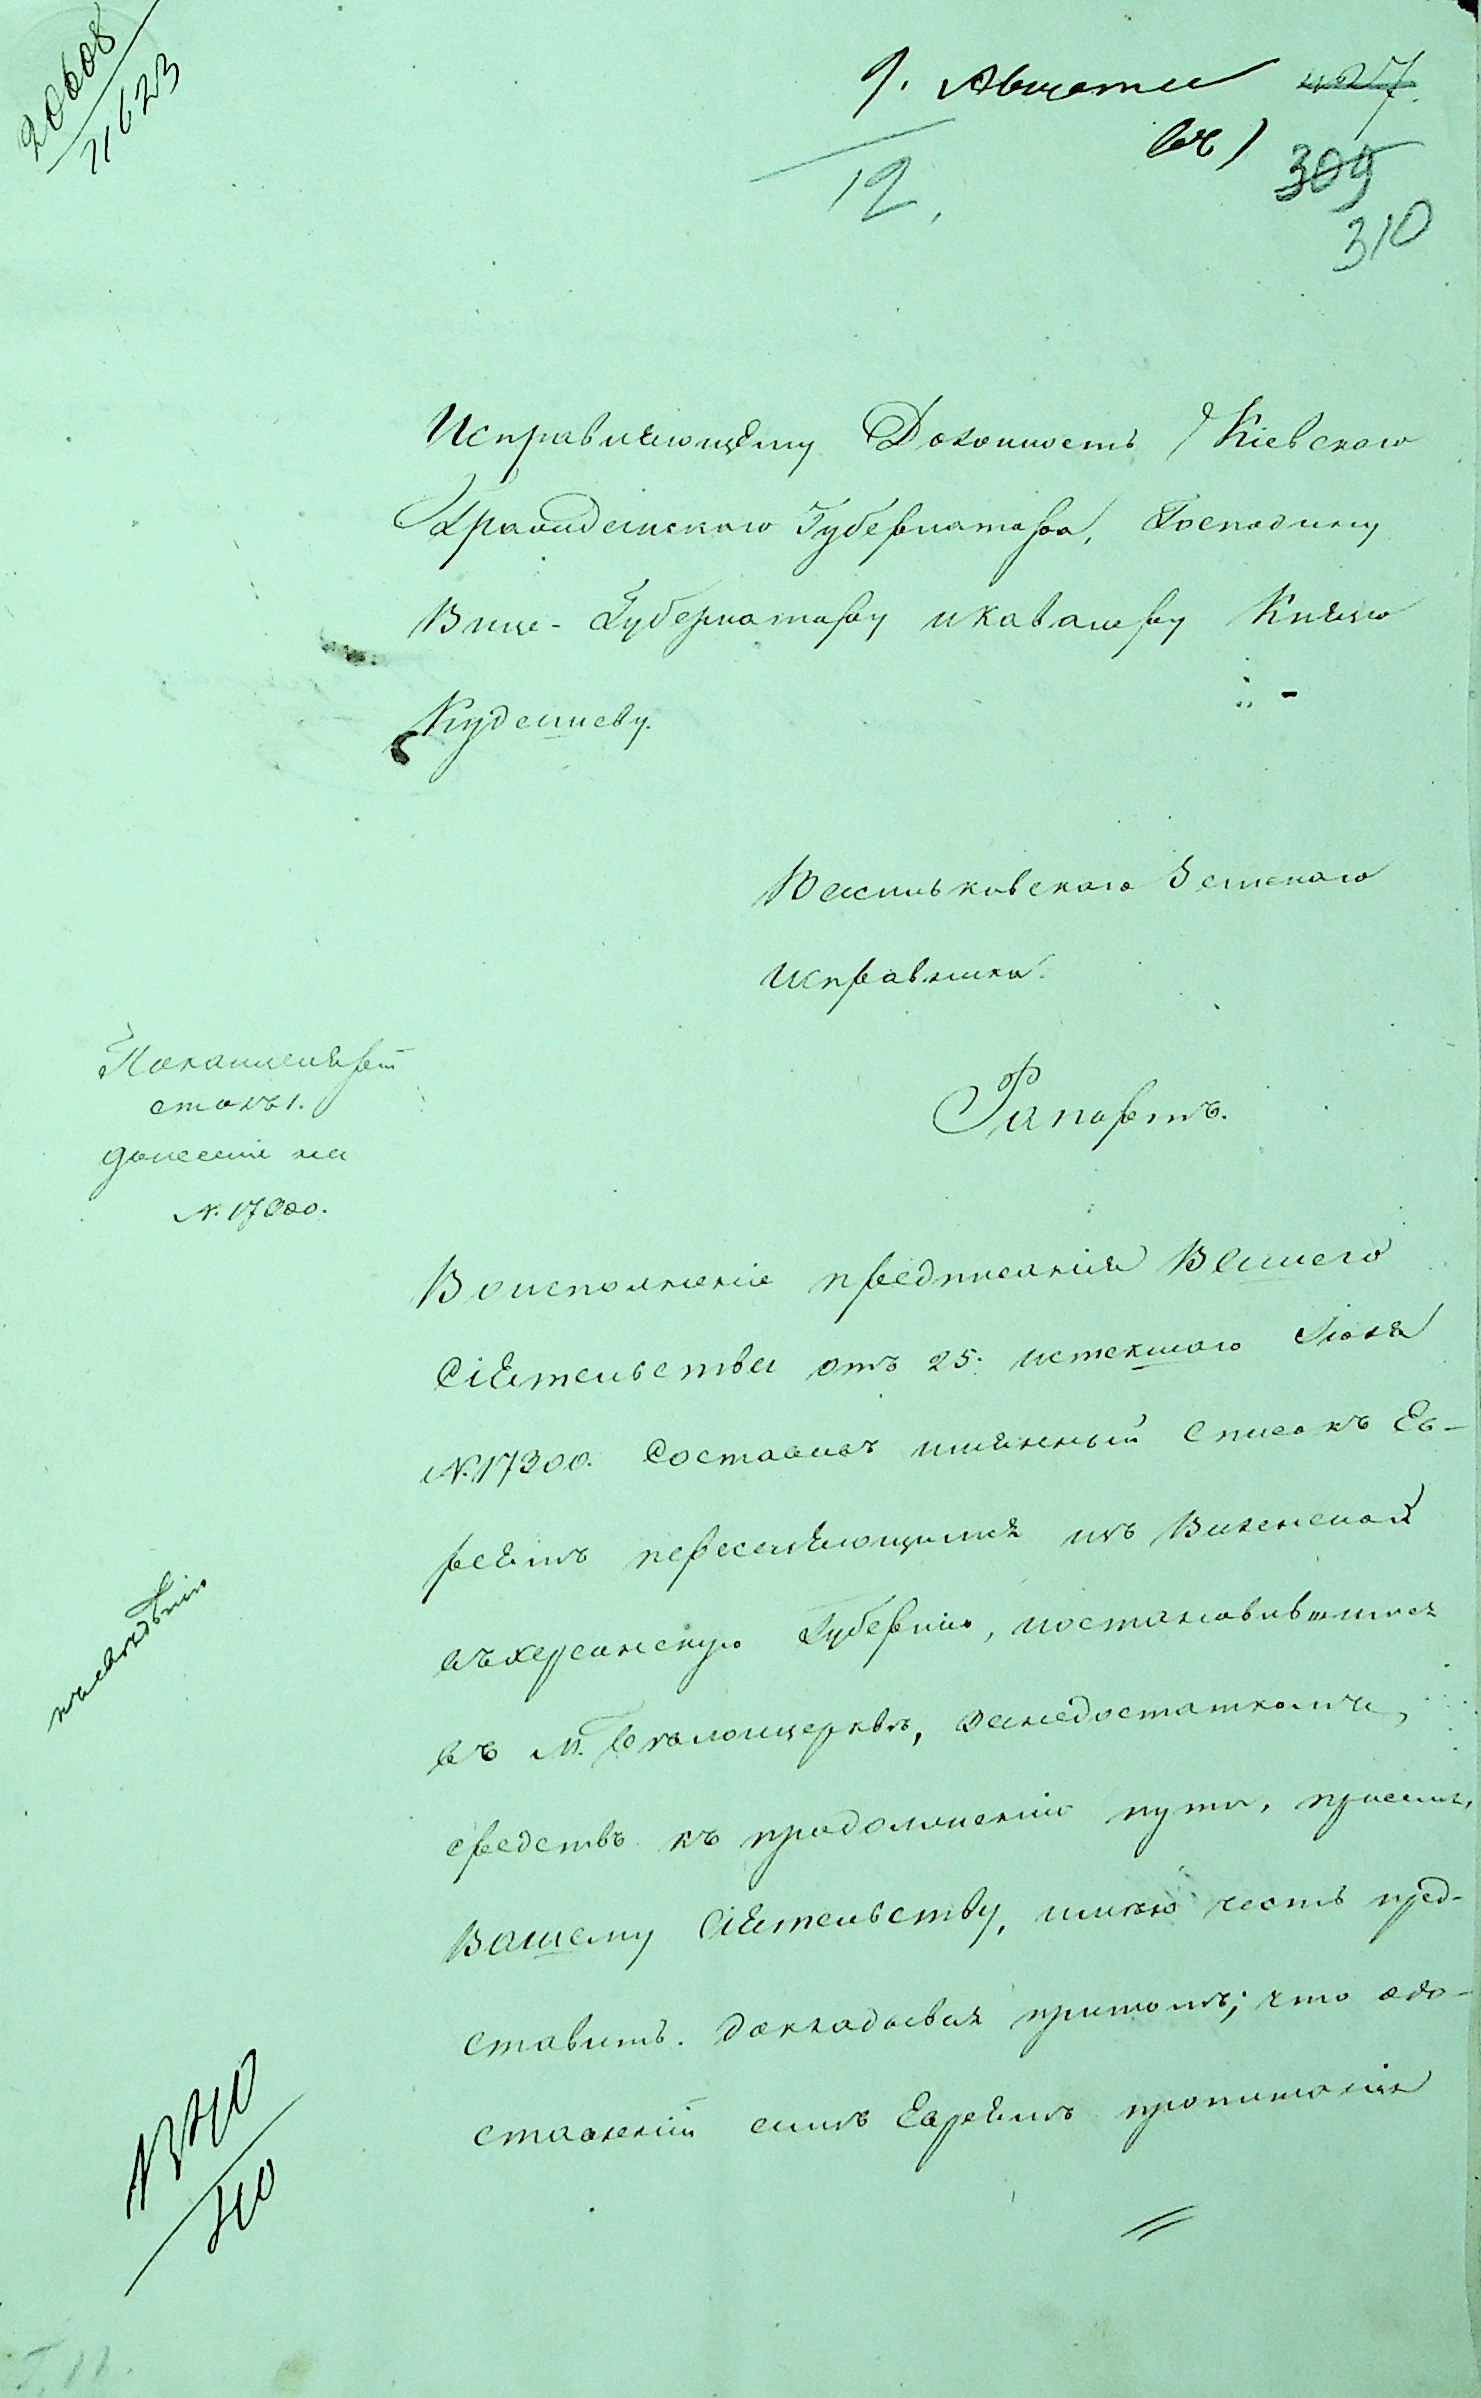 20608
11623
9. Августа 427
12.
309
310
Исправляющему Должность Кіевскаго
Гражданскаго Губернатора, Господину
Вице-Губернатору и кавалеру Князю
Кудашеву.
Васильковскаго Земскаго
Исправника.
Рапортъ.
донесеніе на
N. 17300.
Во исполненіе предписанія Вашего
Сіятельства отъ 25. истекшаго Іюля
N. 17300. составивъ имянный списокъ Ев-
реямъ переселяющимся изъ Виленской
въ херсонскую Губернію, и остановившимся
въ М. Белоцерквѣ, за недостаткомъ
средствъ къ продолженію пути, при семъ,
Вашему Сіятельству, имѣю честь пред-
ставить. докладывая притомъ; что о до-
ставленіи симъ Евреямъ пропитанія
къ свѣдѣнію
310